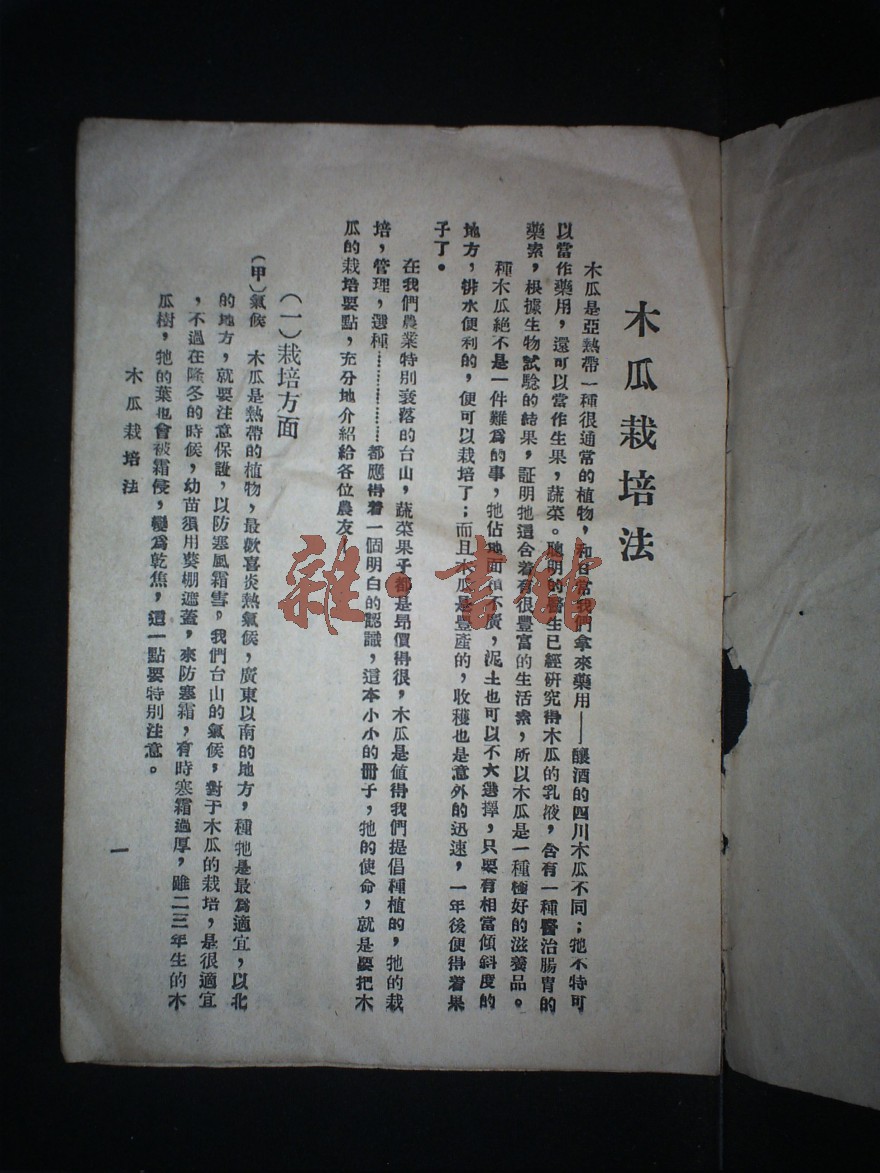 木瓜栽培法
木瓜是亞熱帶一種很通常的植物，和日常我們拿來藥用——釀酒的四川木瓜不同；牠不特可
以當作藥用，還可以當作生果，蔬菜。聰明的醫生已經研究得木瓜的乳液，含有一種醫治腸胃的
藥素，根據生物試驗的結果，証明牠這含着有很豐富的生活素，所以木瓜是一種極好的滋養品。
種木瓜絕不是一件難為的事，牠佔地面積不廣，泥土也可以不大選擇，只要有相當傾斜度的
地方，排水便利的，便可以栽培了；而且木瓜是豐產的，收穫也是意外的迅速，一年後便得着果
子了。
在我們農業特別衰落的台山，蔬菜果子都是昂價得很，木瓜是值得我們提倡種植的，牠的栽
培，管理，選種…………都應得着一個明白的認識，這本小小的冊子，牠的使命，就是要把木
瓜的栽培要點，充分地介紹給各位農友
（一）栽培方面
（甲）氣候　木瓜是熱帶的植物，最歡喜炎熱氣候，廣東以南的地方，種牠是最為適宜，以北
的地方，就要注意保護，以防寒風霜雪，我們台山的氣候，對于木瓜的栽培，是很適宜
，不過在隆冬的時候，幼苗須用葵棚遮蓋，來防寒霜，有時寒霜過厚，雖二三年生的木
瓜樹，牠的葉也會被霜侵，變為乾焦，這一點要特別注意。
木瓜栽培法
一
雜·書館